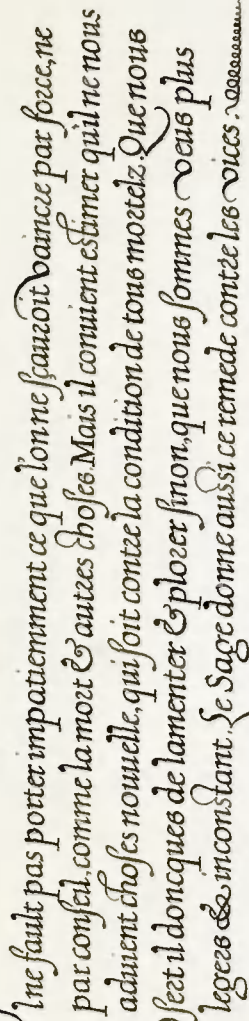 Il ne fault pas porter impatiemment ce que lon ne sçauroit vaincre par force, ne
par conseil, comme la mort & autres choses. Mais il convient estimer quil ne nous
advient choses nouuelle, qui soit contre la condition de tous mortelz. Que nous
sert il doncques de lamenter & plorer sinon, que nous sommes veus plus
legers & inconstant. Le Sage donne aussi ce remede contre les vices.